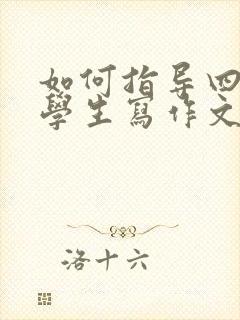 如何指导四
學生寫作文
洛十六